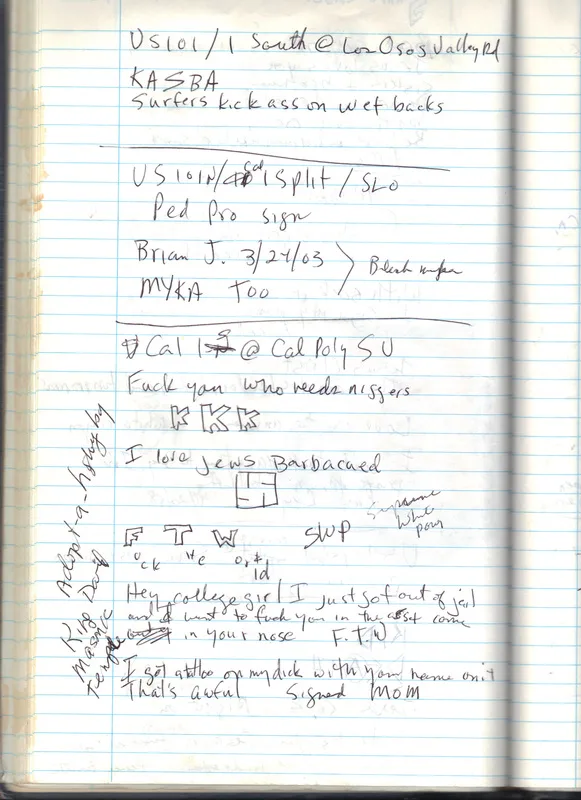 US101/1 South @ Los Osos Valley Rd
KASBA
Surfers kick ass on wet backs
US 101N/ Cal 1 Split / SLO
Ped Pro sign
Brian J. 3/24/03
MYKA TOO
Black
Cal 1 S @ Cal Poly SU
Fuck you who needs niggers
KKK
I love Jews Barbacued
F T W
uck he orld
SWP
Supreme
White
Pow
Hey college girl I just got out of jail
and I want to fuck you in the ass come
in your nose F.T.W
I got attoo on my dick with your name on it
That's awful Signed Mom
Adopt-a-hghwy by
King David
Masonic
Temple